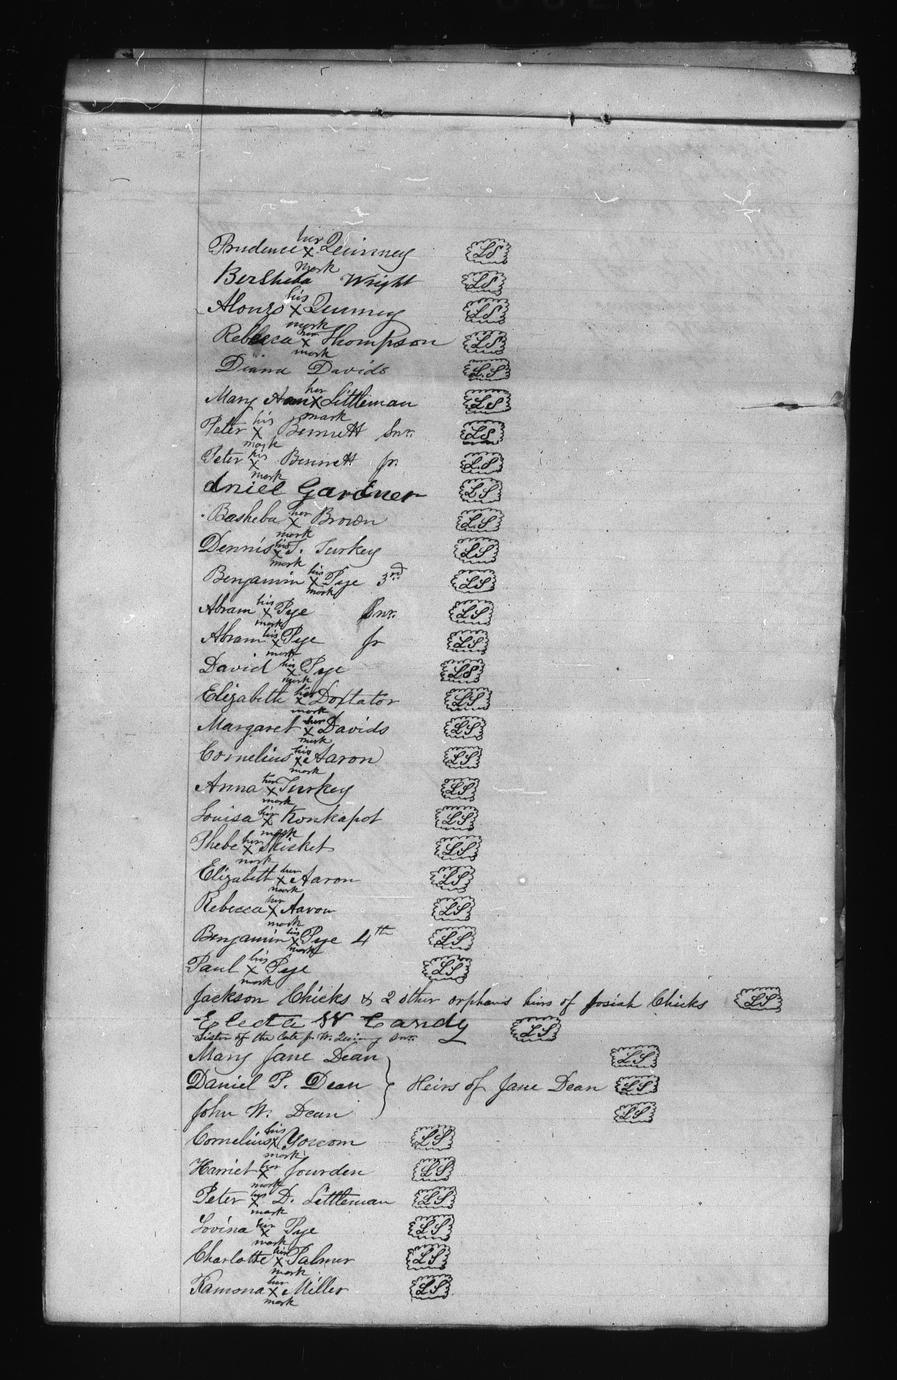 Prudence her x mark Quinney LS
Bersheba Wright LS
Alonzo his x mark Quinney LS
Rebecca her x mark Thompson LS
Diana Davids LS
Mary Ann her x mark Littleman LS
Peter his x mark Bennett Snr. LS
Peter his x mark Bennett Jr. LS
dniel Gardner LS
Basheba her x mark Brown LS
Dennis his x mark T. Turkey LS
Benjamin his x mark Pye 3rd LS
Abram his x mark Pye Snr. LS
Abram his x mark Pye Jr LS
David his x mark Pye LS
Elizabeth her x mark Doxtator LS
Margaret her x mark Davids LS
Cornelius his x mark Aaron LS
Anna her x mark Turkey LS
Louisa her x mark Konkapot LS
Phebe her x mark Skisket LS
Elizabeth her x mark Aaron LS
Rebecca her x mark Aaron LS
Benjamin his x mark Pye 4th LS
Paul his x mark Pye LS
Jackson Chicks & 2 other orphans heirs of Josiah Chicks LS
Electa W Candy LS
Sister of the late J. W. Quinney Snr.
Mary Jane Dean LS
Daniel P. Dean } Heirs of Jane Dean LS
John W. Dean LS
Cornelius his x mark Yocom LS
Harriet her x mark Jourden LS
Peter his x mark D. Littleman LS
Lovina her x mark Pye LS
Charlotte her x mark Palmer LS
Ramona her x mark Miller LS